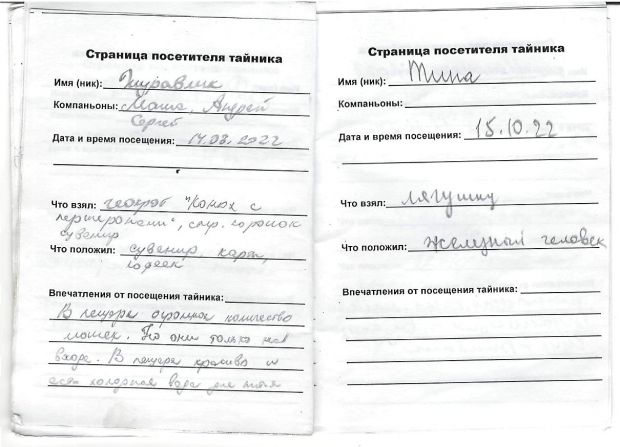 Страница посетителя тайника
Имя (ник): Журавлик
Компаньоны: Маша, Андрей
Сергей
Дата и время посещения: 14.08.2022
Что взял: геокрет "Конах с
сувенир
Что положил: сувенир, карты,
Впечатления от посещения тайника:
В пещере огромное количество
мошек. Но они только на
входе. В пещере красиво и
есть холодная вода для питья
Страница посетителя тайника
Имя (ник): Тина
Компаньоны:
Дата и время посещения: 15.10.22
Что взял: лягушку
Что положил: железный человек
Впечатления от посещения тайника: